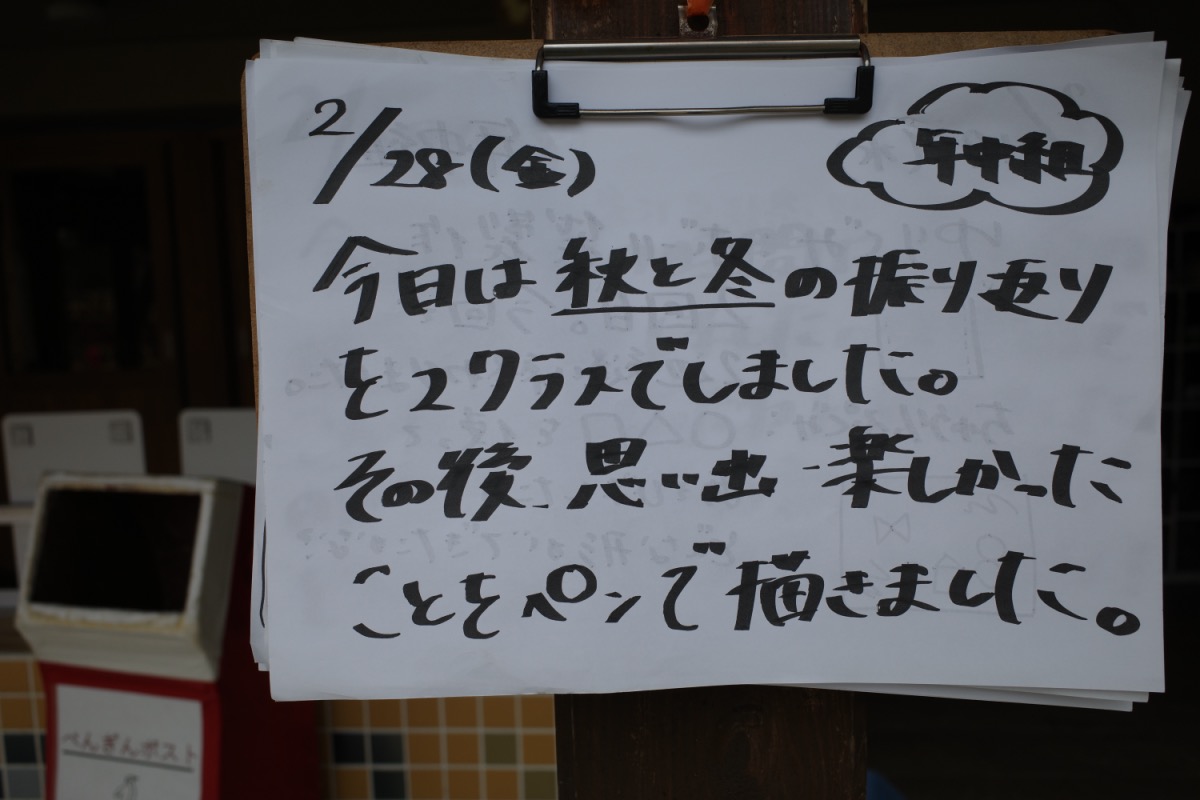 2/28(金)
年中組
今日は秋と冬の振り返り
を2クラスでしました。
その後、思い出・楽しかった
ことをペンで描きました。
ぺんぎんポスト